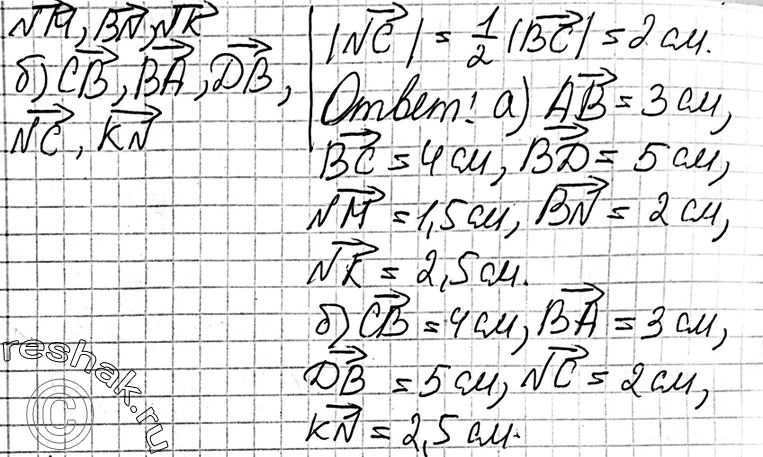 NM, BN, NK
б) CB, BA, DB,
NC, KN
|NC| = 1/2 |BC| = 2 см.
Ответ: а) AB = 3 см,
BC = 4 см, BD = 5 см,
NM = 1,5 см, BN = 2 см,
NK = 2,5 см.
б) CB = 4 см, BA = 3 см,
DB = 5 см, NC = 2 см,
KN = 2,5 см.
reshak.ru
©